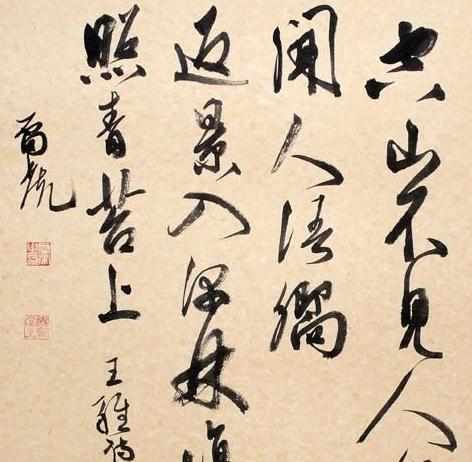 空山不見人
聞人語響
返景入深林復
照青苔上 王維詩